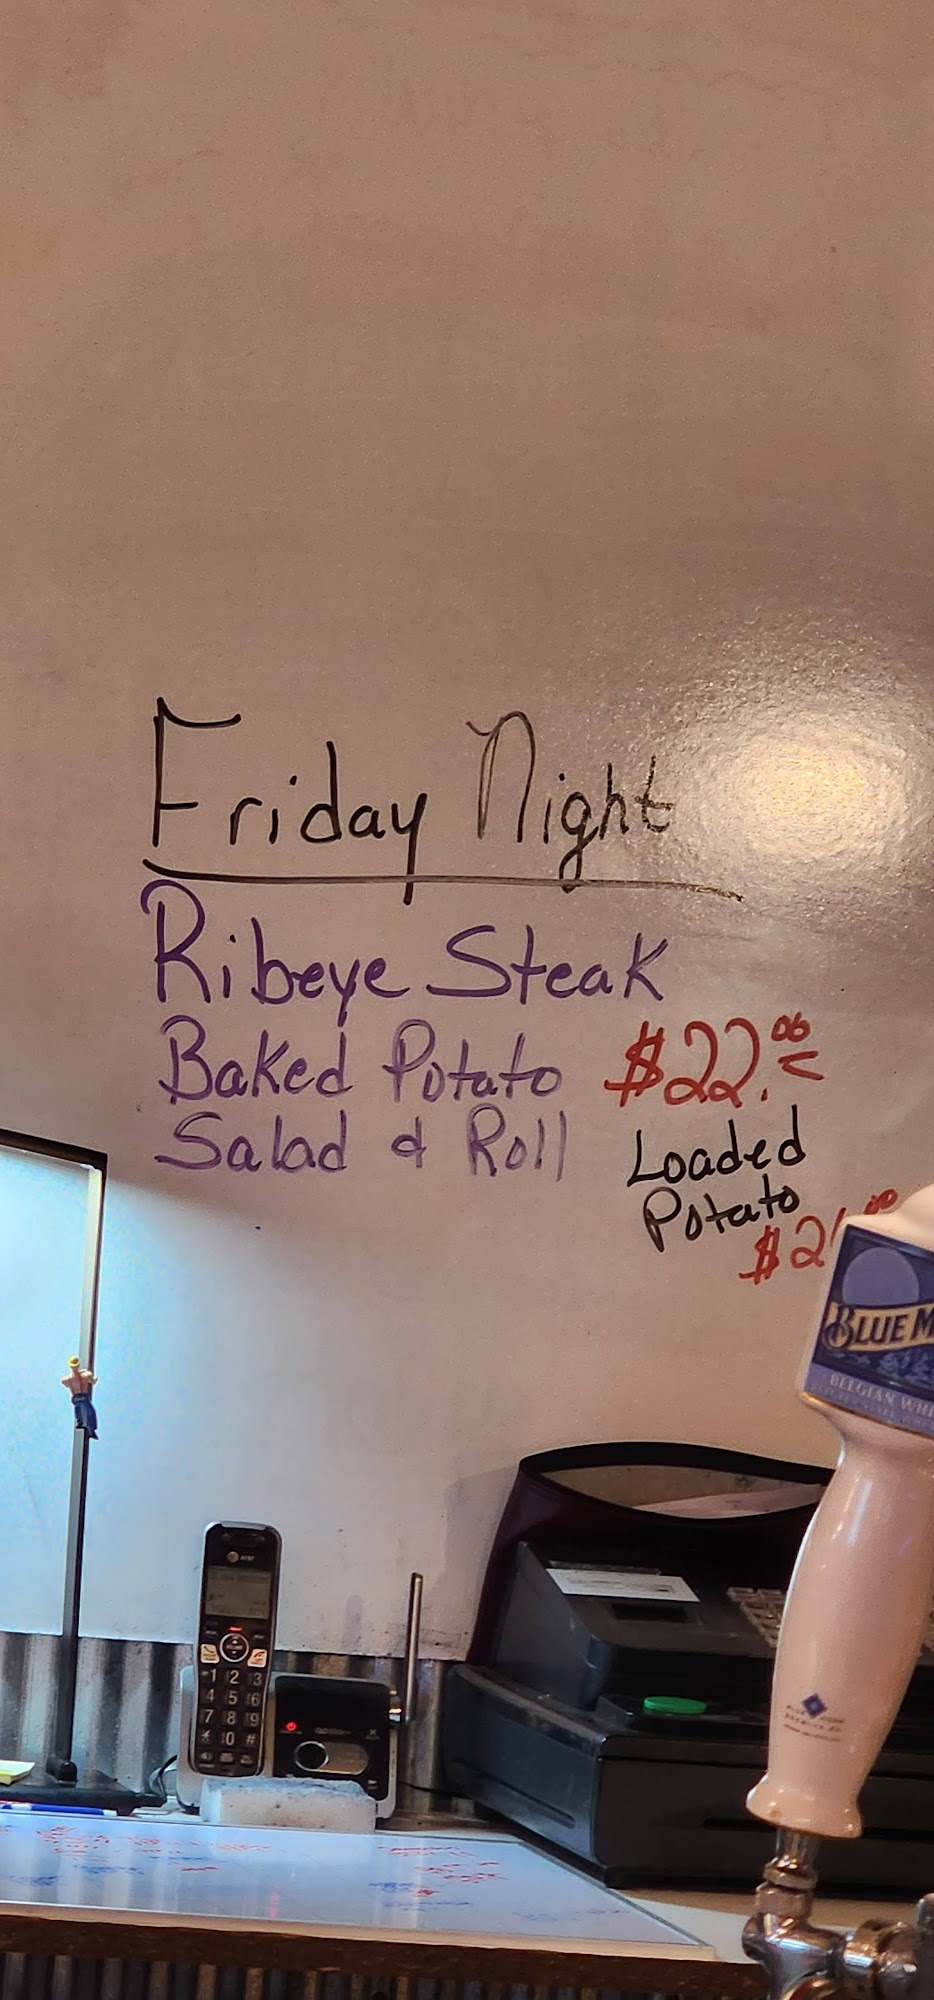 Friday Night
Ribeye Steak
Baked Potato $22.00
Salad & Roll
Loaded
Potato
BLUE M
BELGIAN WHI
AT&T
1 2 3
4 5 6
7 8 9
* 0 #